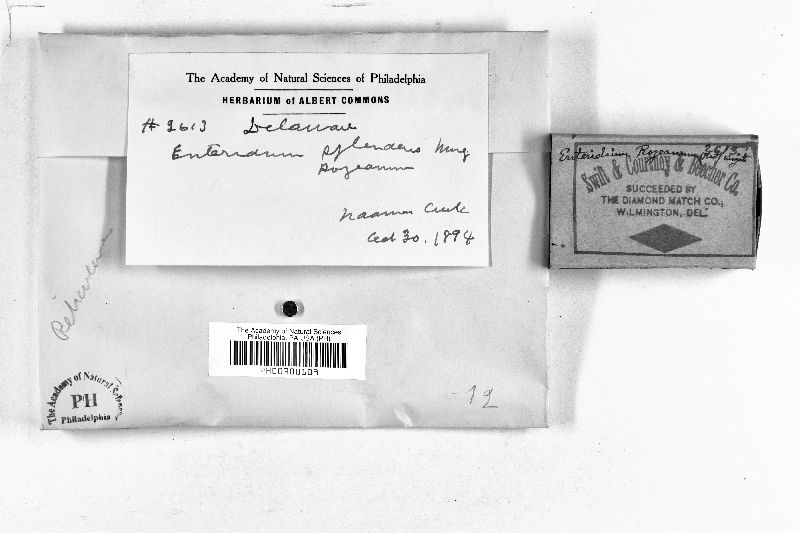 The Academy of Natural Sciences of Philadelphia
HERBARIUM of ALBERT COMMONS
# 2613 Delaware
Enteridium splendens Morg
Rozeanum
Naaman Creek
Oct 30, 1894
Enteridium Rozeanum 2613
Swift & Courtney & Beecher Co.
SUCCEEDED BY
THE DIAMOND MATCH CO.,
WILMINGTON, DEL.
The Academy of Natural Sciences
Philadelphia, PA USA (PH)
The Academy of Natural Sciences
PH
Philadelphia
-12